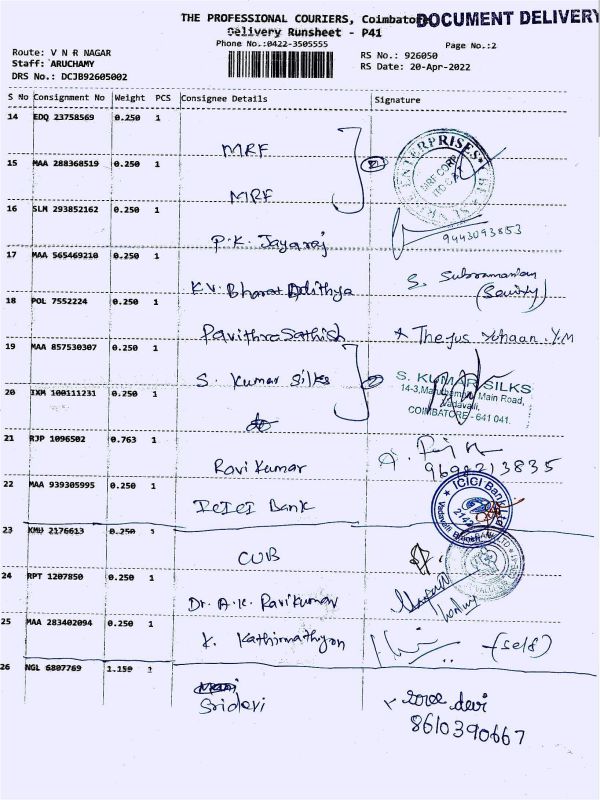 THE PROFESSIONAL COURIERS, Coimbatore
DOCUMENT DELIVERY
Delivery Runsheet - P41
Phone No.:0422-3505555
Page No.:2
Route: V N R NAGAR
Staff: ARUCHAMY
DRS No.: DCJB92605002
RS No.: 926050
RS Date: 20-Apr-2022
S No Consignment No Weight PCS Consignee Details Signature
14 EDQ 23758569 0.250 1 MRF
15 MAA 288368519 0.250 1 MRF
ENTERPRISES
MRF CORP
16 SLM 293852162 0.250 1 P.K. Jayaraj
9443093853
17 MAA 565469210 0.250 1 K.V. Bharat Adithya
S. Subramanian
(Security)
18 POL 7552224 0.250 1 Pavithra Sathish
Thejus Yuhaan .Y.M
19 MAA 857530307 0.250 1 S. Kumar Silks
S. KUMAR SILKS
14-3, Maruthamalai Main Road,
Vadavalli,
COIMBATORE - 641 041.
20 IXM 100111231 0.250 1
21 RJP 1096502 0.763 1 Ravi Kumar
9698213835
22 MAA 939305995 0.250 1 ICICI Bank
ICICI Bank
23 KMU 2176613 0.250 1 CUB
24 RPT 1207850 0.250 1 Dr. A.K. Ravikumar
25 MAA 283402094 0.250 1 K. Kathirmathiyon
(self)
26 NGL 6807769 1.159 1
Sridevi
Sree devi
8610390667